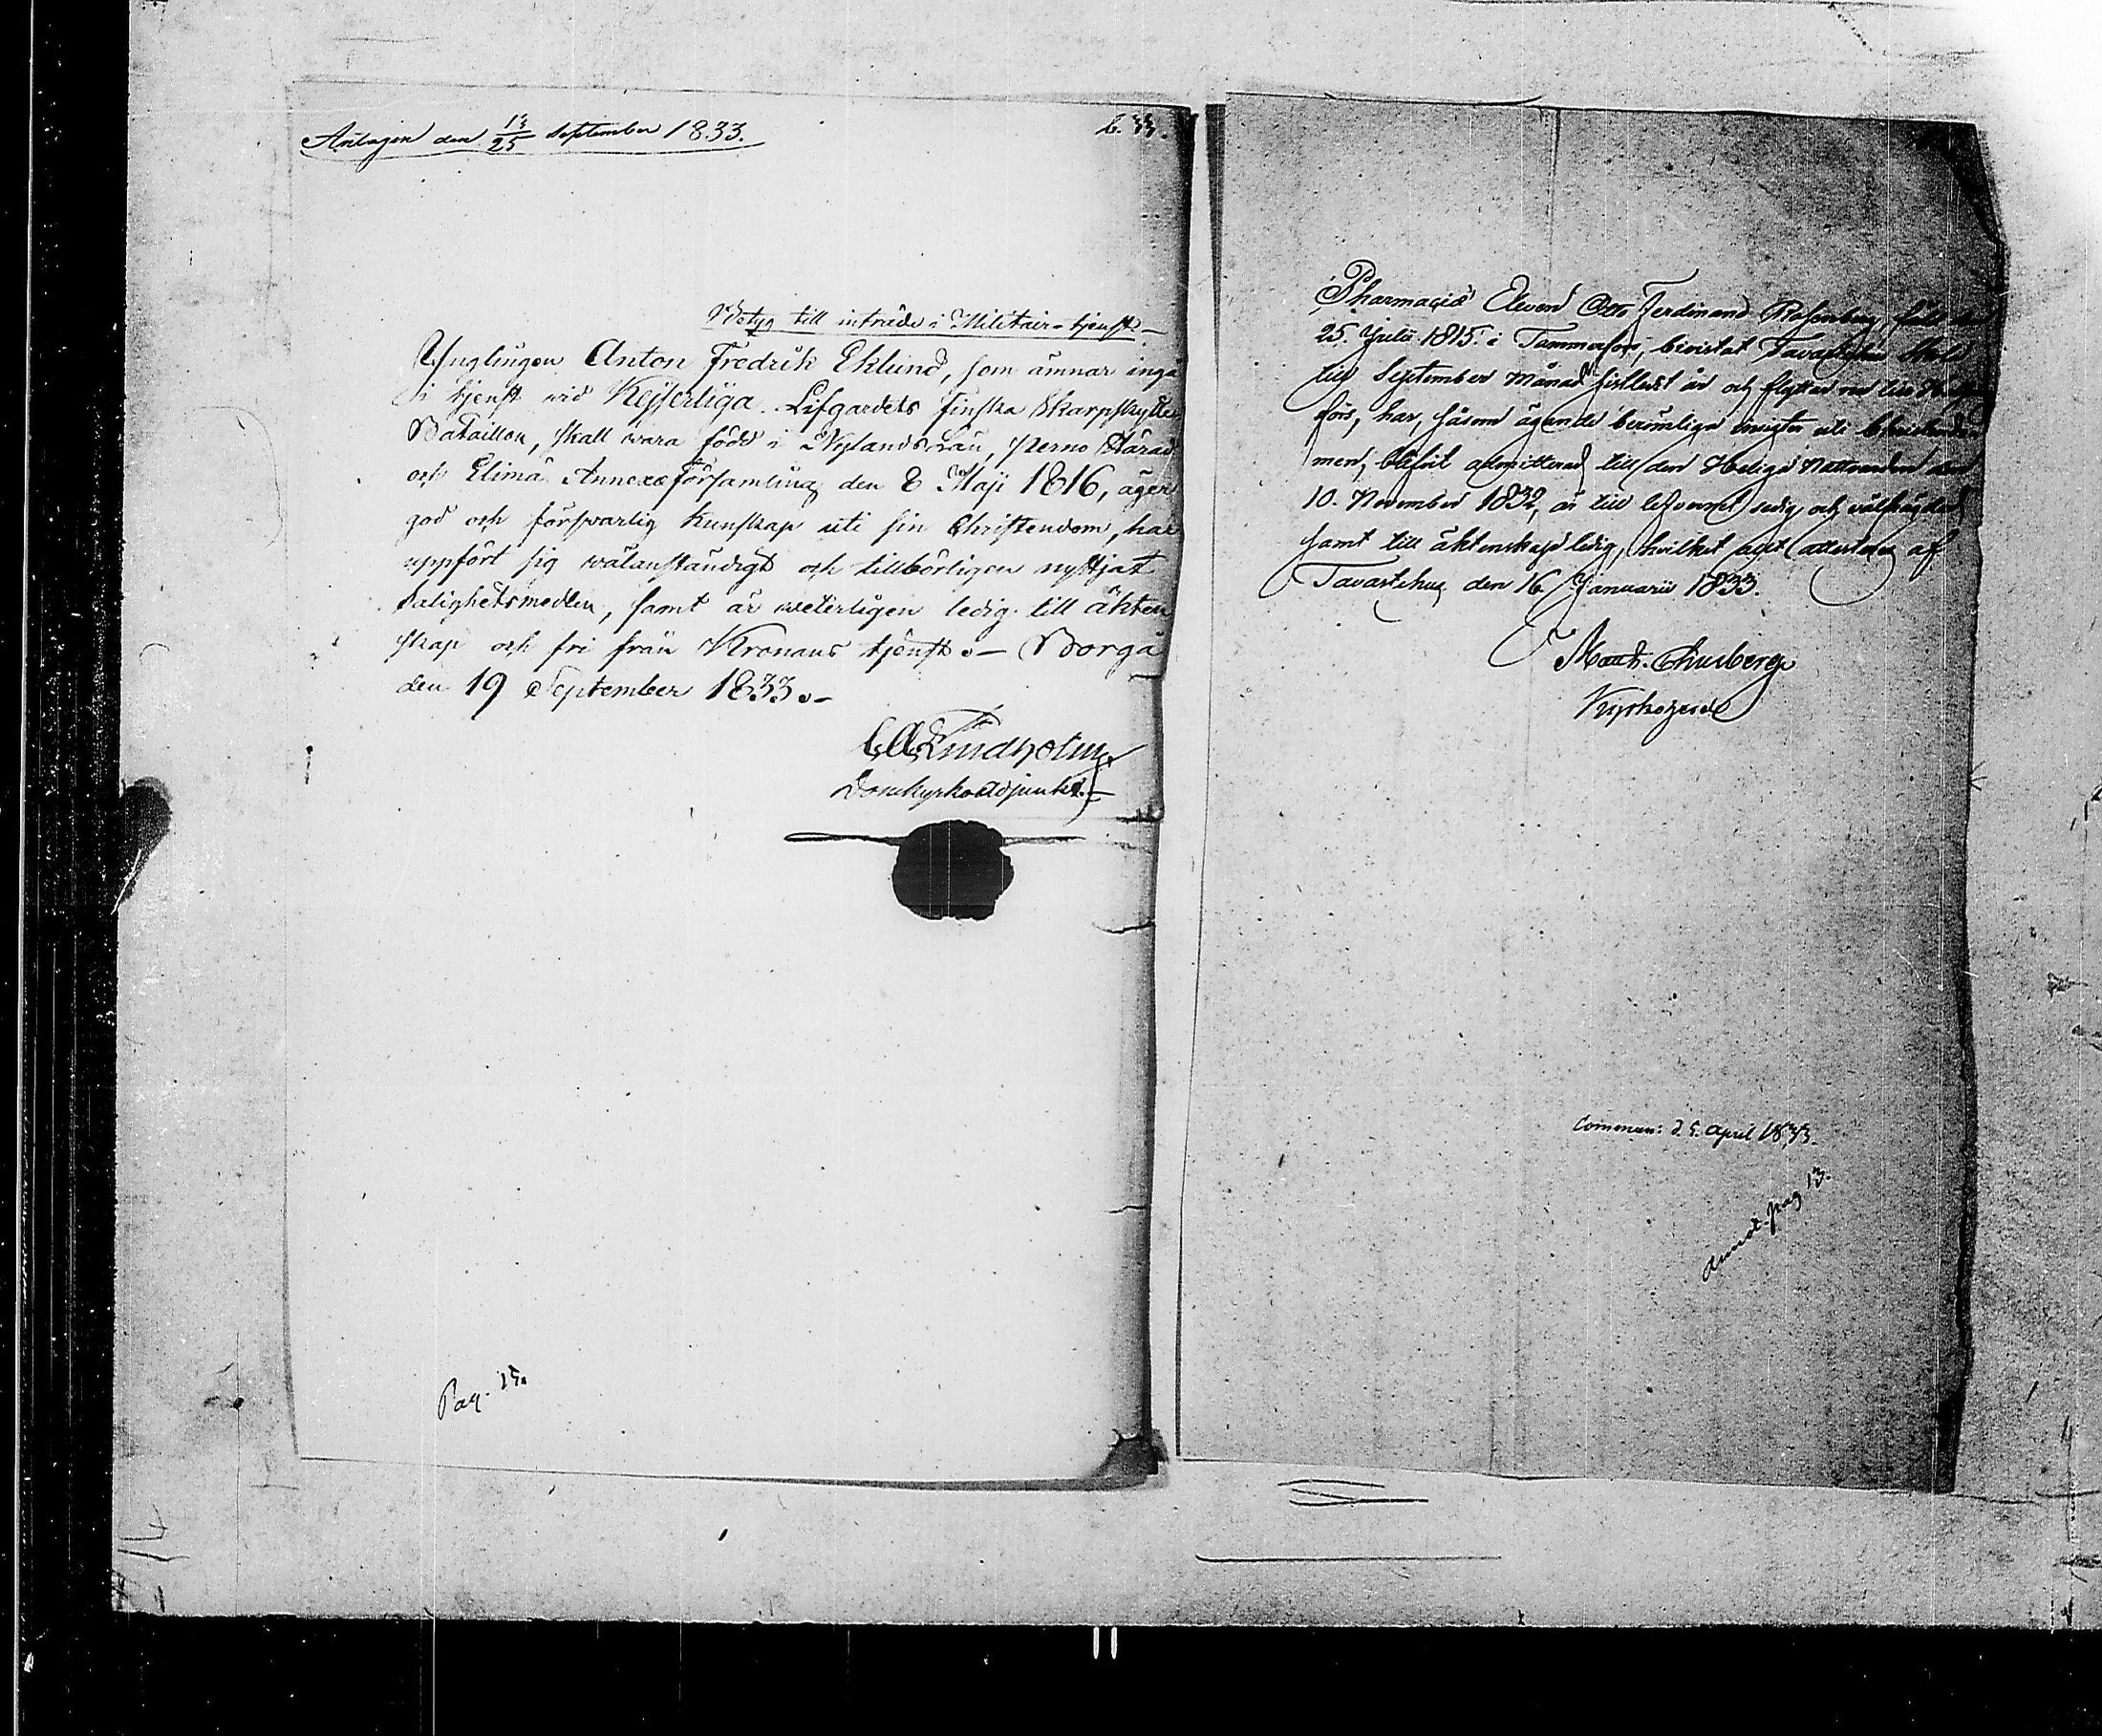 Antagen den 13/25 September 1833.
b. 33.
Betyg till inträde i Militair-tjenst.
Ynglingen Anton Fredrik Eklund, som ämnar ingå
i tjenst vid Kejserliga Lifgardets finska Skarpskytte
Bataillon, skall wara född i Nylands Län, Perno Härad
och Elimä Annexe församling den 8 Maji 1816, äger
god och förswarlig kunskap uti sin Christendom, har
uppfört sig wälanständigt och tillbörligen nyttjat
salighetsmedlen, samt är weterligen ledig till äkten
skap och fri från Kronans tjenst. Borgå
den 19 September 1833.
C. A. Lindholm
Domkyrko Adjunkt.
Pag. 15.
Pharmaciæ Eleven Otto Ferdinand Rosenberg, född den
25. Julii 1815 i Tammerfors, bivistat Tavastehus
till September Månad sistledit år och flyttar nu till
fors, har, såsom ägande berömliga insigter uti
men, blifvit admitterad till den Heliga Nattvarden den
10. November 1832, är till lefvernet sedig och välfrägdad
samt till äktenskap ledig, hvilket attesteras af
Tavastehus den 16 Januarii 1833.
Kyrkoherde
Commun: d. 5. April 1833.
Annot. pag 13.